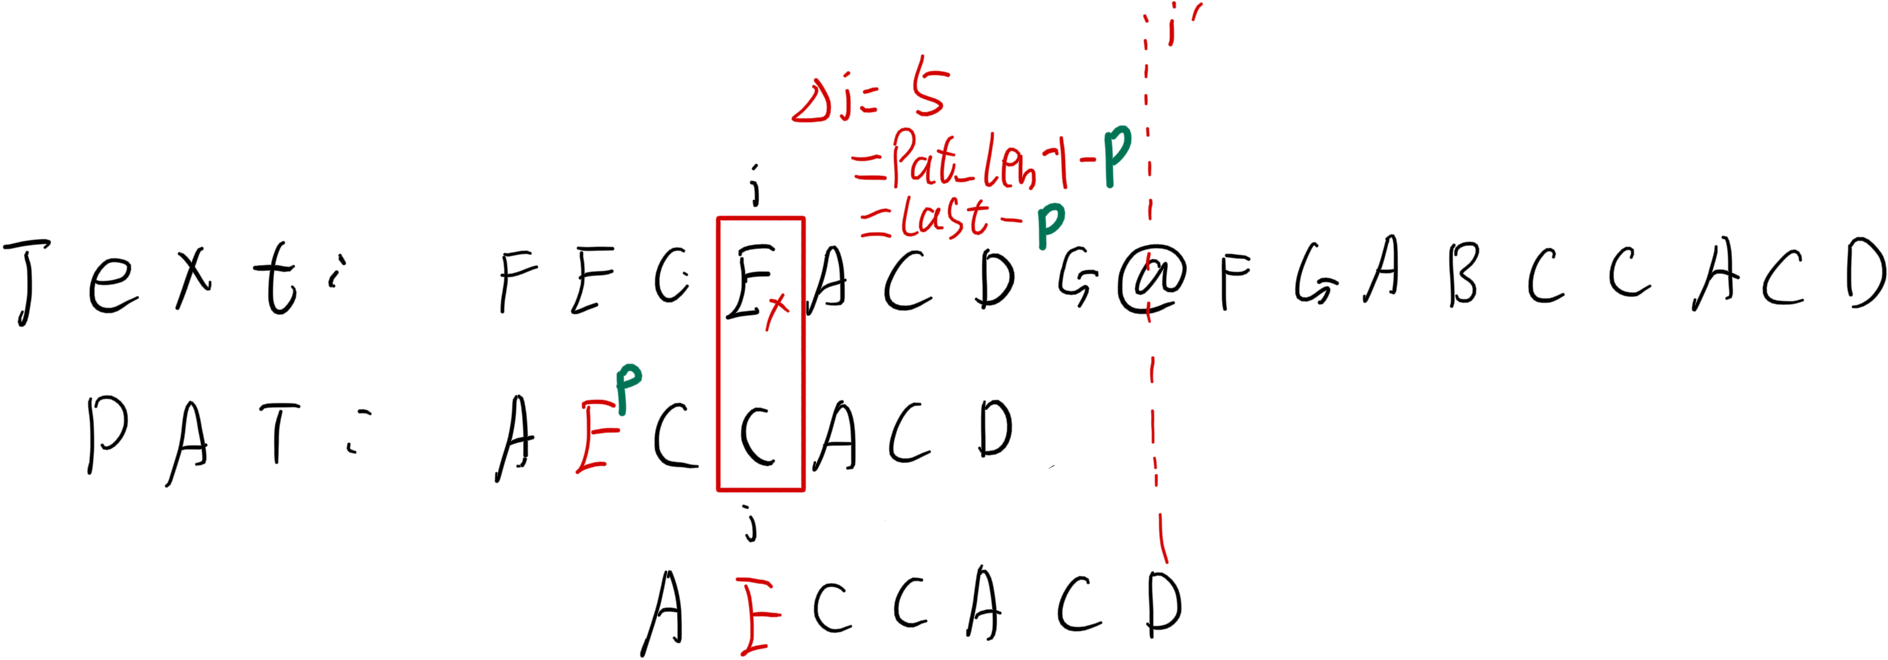 i'
Δi = 5
= Pat_len-1-P
= last-P
i
Text: F E C E x A C D G @ F G A B C C A C D
P
PAT: A E C C A C D
j
A E C C A C D